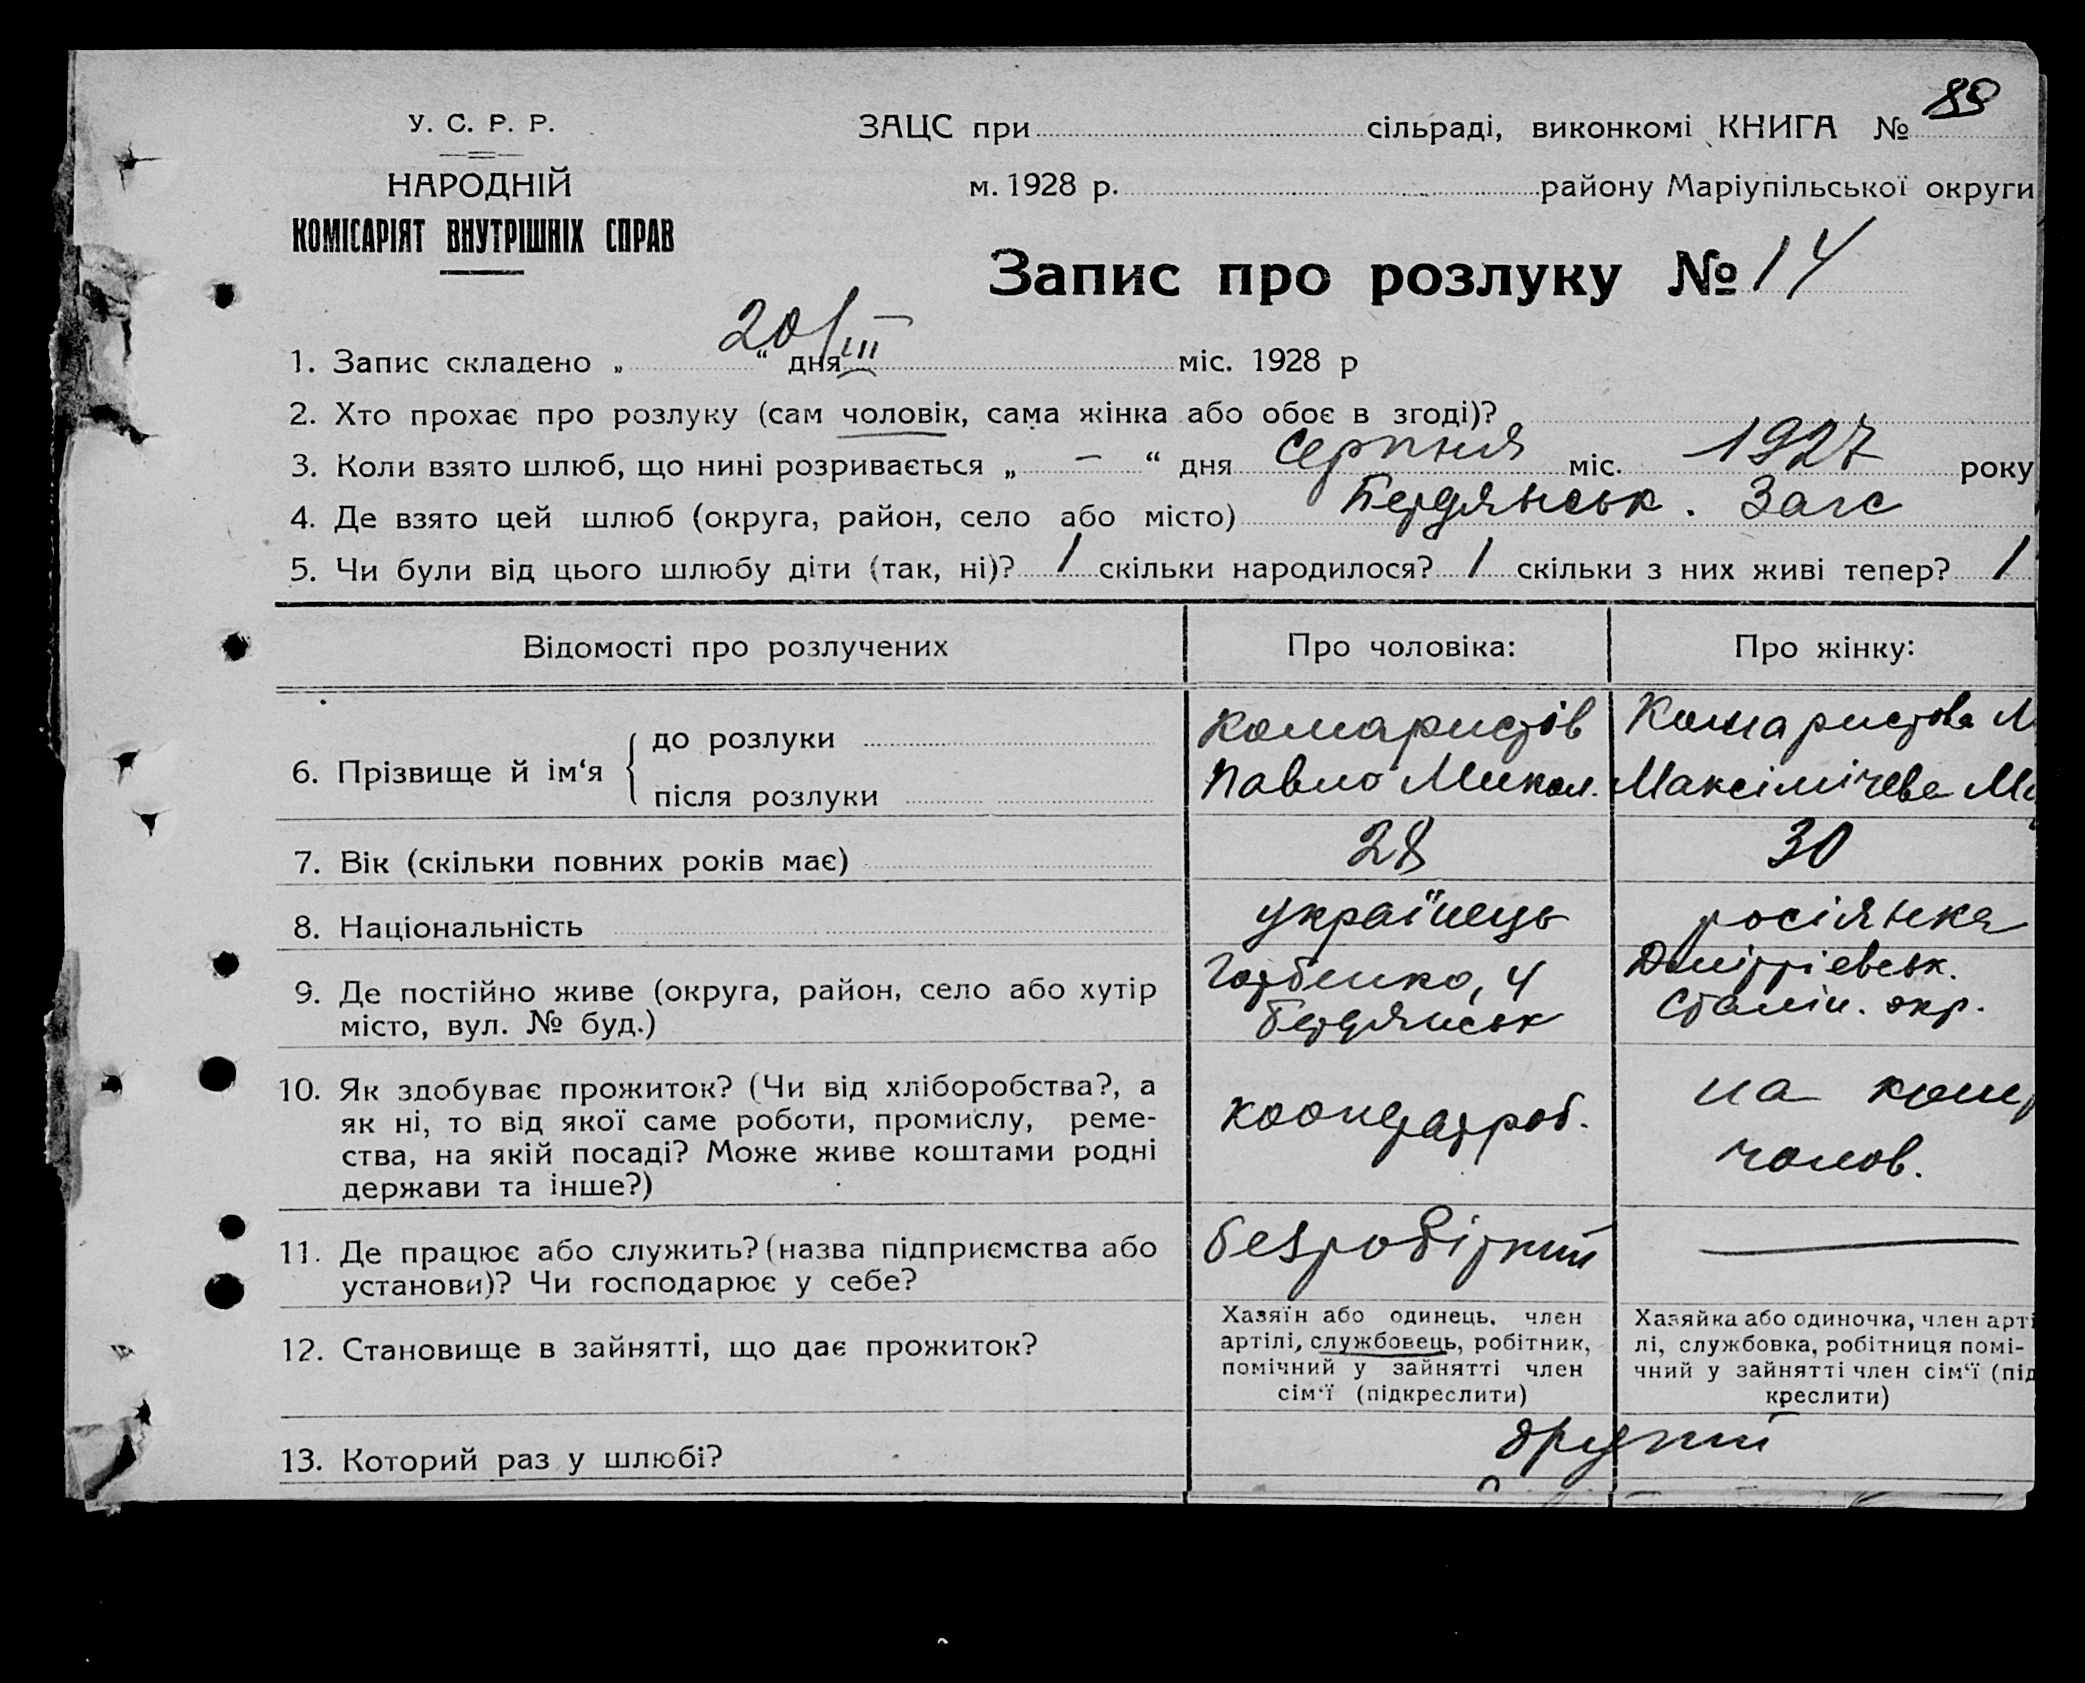 88
У. С. Р. Р.
ЗАЦС при сільраді, виконкомі КНИГА №
НАРОДНІЙ
м. 1928 р. району Маріупільської округи
КОМІСАРІЯТ ВНУТРІШНІХ СПРАВ
Запис про розлуку № 14
1. Запис складено „ 20/III “ дня міс. 1928 р
2. Хто прохає про розлуку (сам чоловік, сама жінка або обоє в згоді)?
3. Коли взято шлюб, що нині розривається „ — “ дня серпня міс. 1927 року
4. Де взято цей шлюб (округа, район, село або місто) Бердянськ. Загс
5. Чи були від цього шлюбу діти (так, ні)? 1 скільки народилося? 1 скільки з них живі тепер? 1
Відомості про розлучених Про чоловіка: Про жінку:
6. Прізвище й ім‘я
до розлуки Комаристів Комаристова М
після розлуки Павло Микол. Максімічева
7. Вік (скільки повних років має) 28 30
8. Національність українець росіянка
9. Де постійно живе (округа, район, село або хутір Горбенко, 4 Дмітрієвськ.
місто, вул. № буд.) Бердянськ Сталін. окр.
10. Як здобуває прожиток? (Чи від хліборобства?, а
як ні, то від якої саме роботи, промислу, реме-
ства, на якій посаді? Може живе коштами родні
держави та інше?)
кооператроб.
на кошт
чолов.
11. Де працює або служить? (назва підприємства або
установи)? Чи господарює у себе?
безробітний —
12. Становище в зайнятті, що дає прожиток?
Хазяїн або одинець, член
артілі, службовець, робітник,
помічний у зайнятті член
сім‘ї (підкреслити)
Хазяйка або одиночка, член арті
лі, службовка, робітниця помі-
чний у зайнятті член сім‘ї (під
креслити)
13. Которий раз у шлюбі? другий